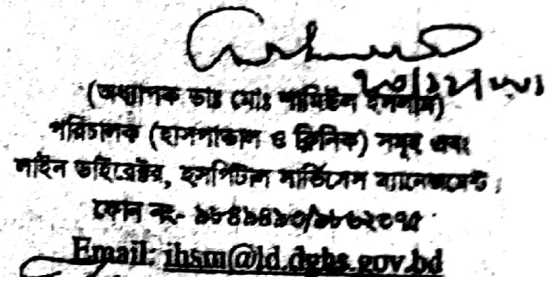 (অধ্যাপক ডাঃ মোঃ শামিউল ইসলাম)
পরিচালক (হাসপাতাল ও ক্লিনিক) সমূহ এবং
লাইন ডাইরেক্টর, হসপিটাল সার্ভিসেস ম্যানেজমেন্ট।
ফোন নং-
Email: ihsm@ld.dghs.gov.bd